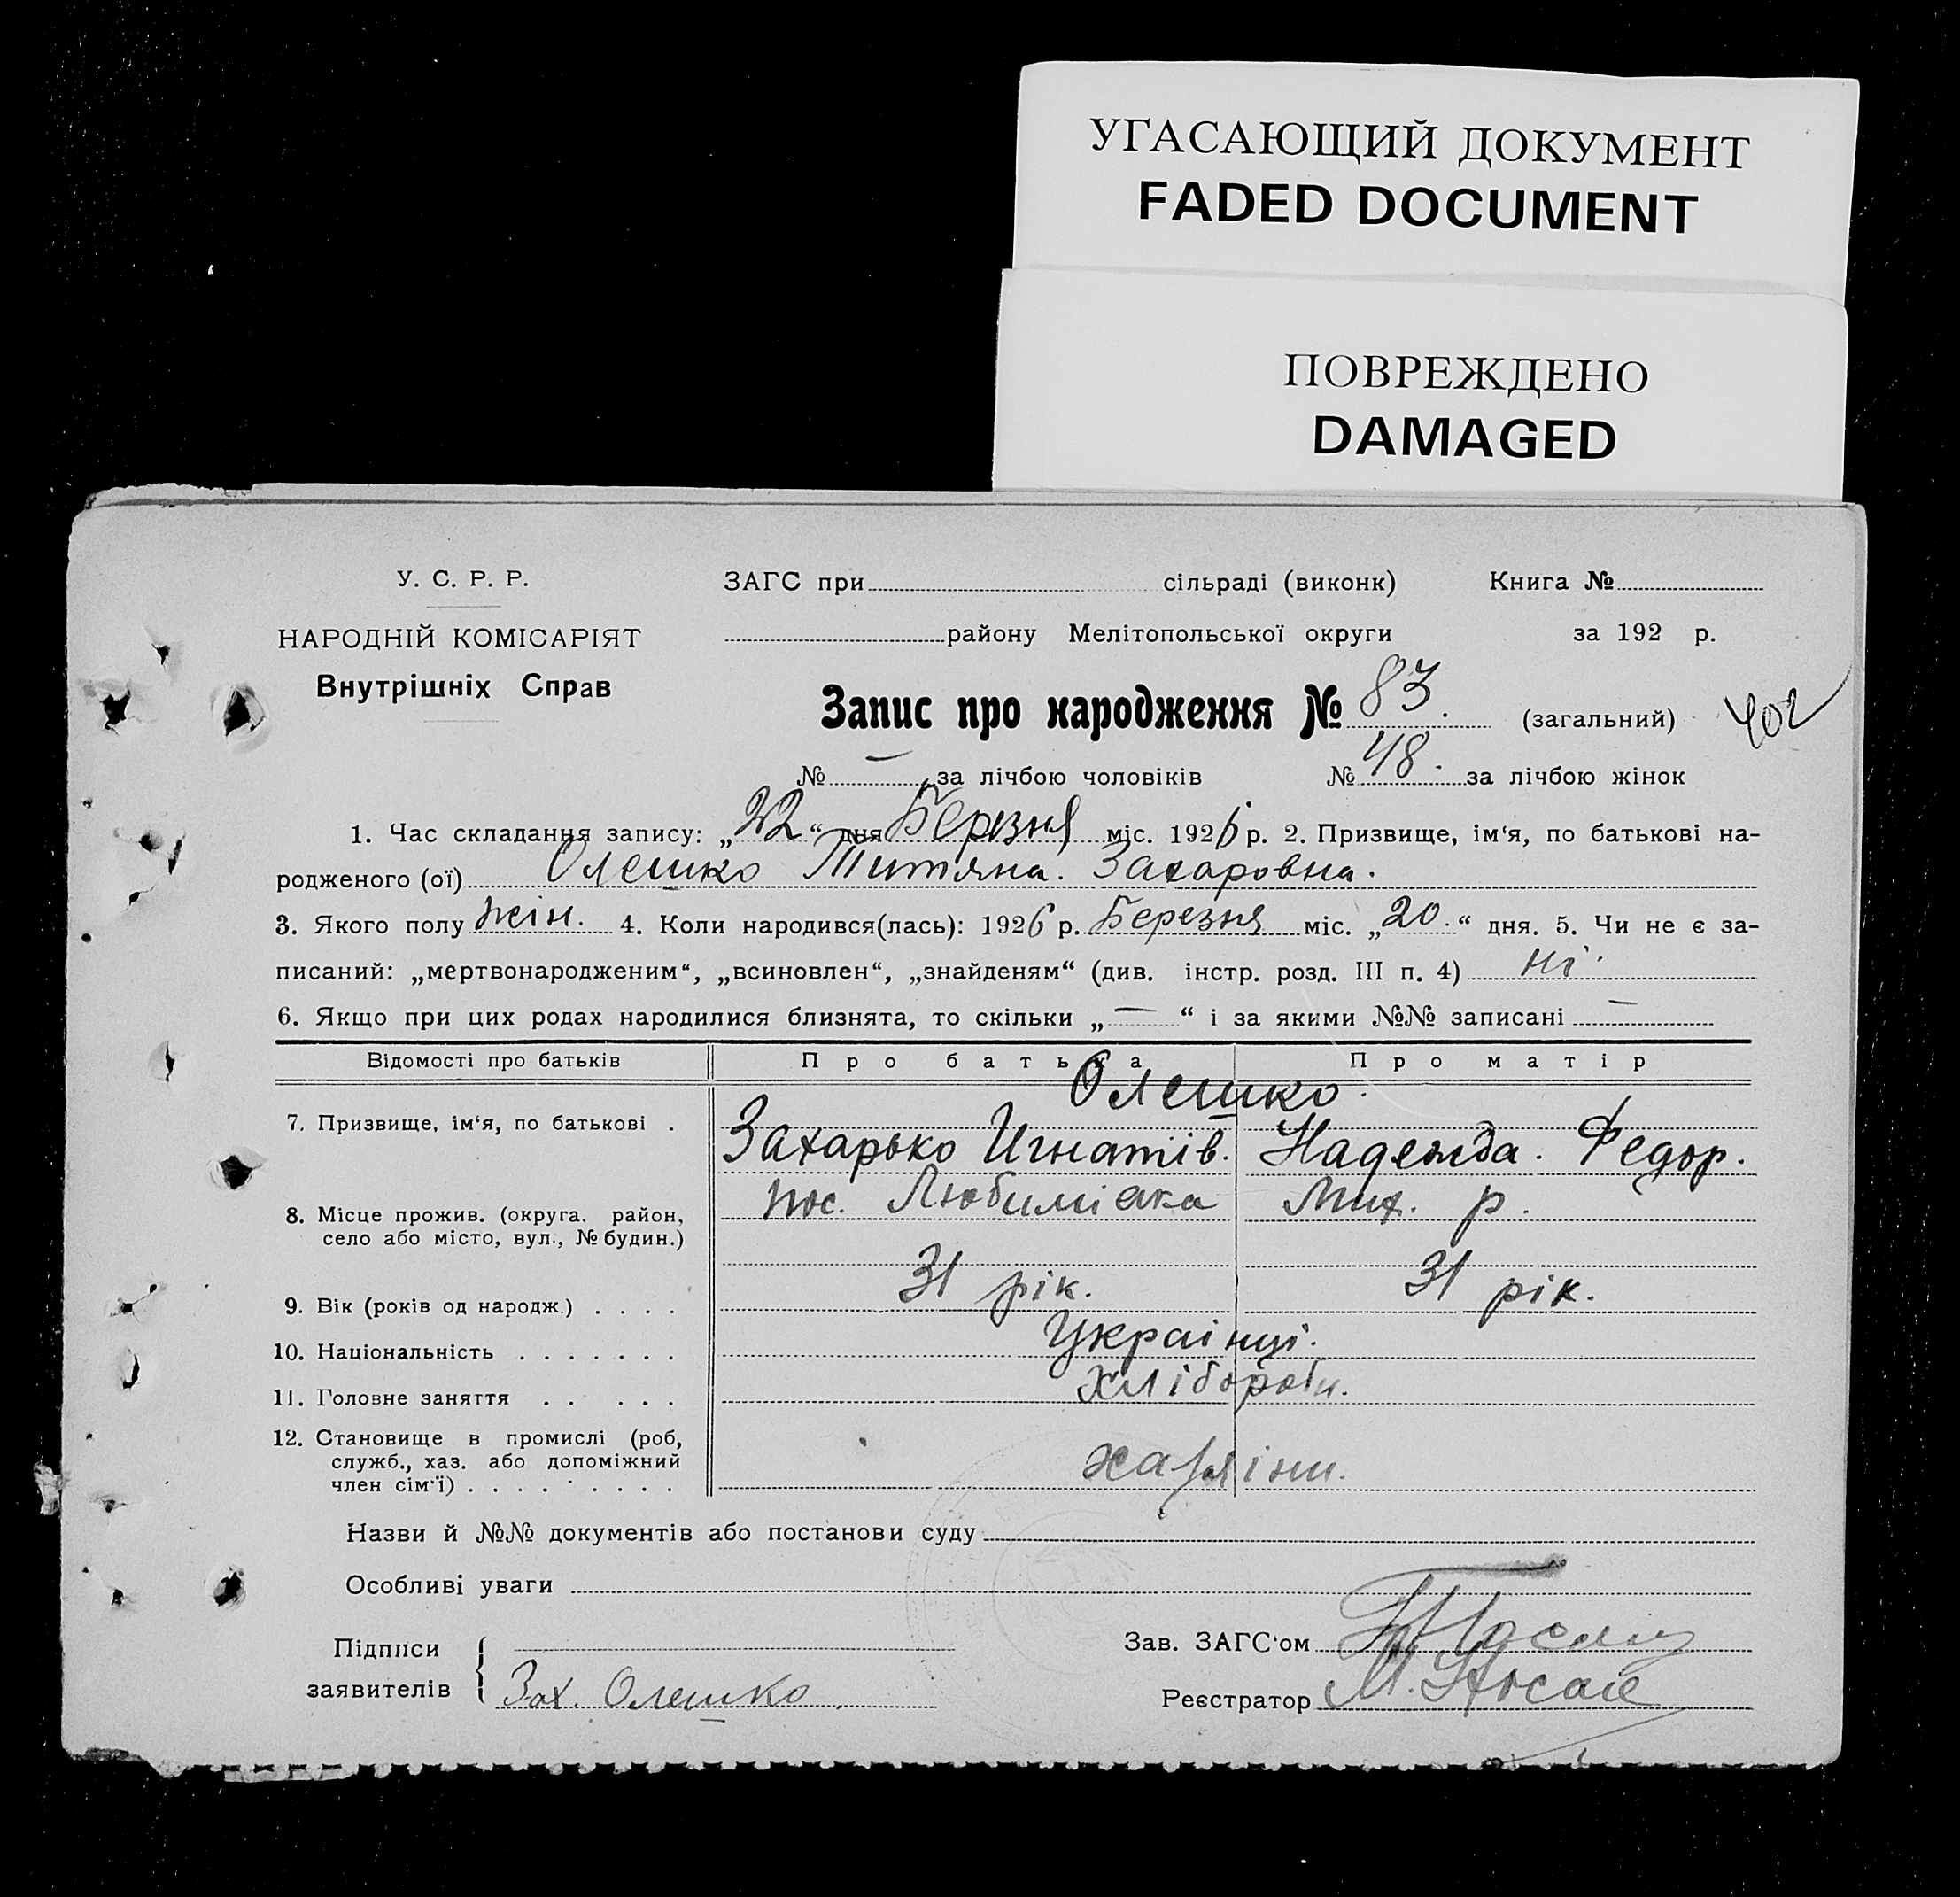 УГАСАЮЩИЙ ДОКУМЕНТ
FADED DOCUMENT
ПОВРЕЖДЕНО
DAMAGED
У. С. Р. Р.
НАРОДНІЙ КОМІСАРІЯТ
Внутрішніх Справ
ЗАГС при сільраді (виконк) Книга №
району Мелітопольської округи за 192 р.
Запис про народження № 83. (загальний) 402
№ — за лічбою чоловіків № 48. за лічбою жінок
1. Час складання запису: „22“ дня Березня міс. 1926 р. 2. Призвище, ім‘я, по батькові на-
родженого (ої) Олешко Титяна. Захаровна.
3. Якого полу жін. 4. Коли народився(лась): 1926 р. Березня міс. „20.“ дня. 5. Чи не є за-
писаний: „мертвонародженим“, „всиновлен“, „знайденям“ (див. інстр. розд. III п. 4) ні.
6. Якщо при цих родах народилися близнята, то скільки „—“ і за якими №№ записані —
Відомості про батьків Про батька Про матір
Олешко.
7. Призвище, ім‘я, по батькові . Захарько Игнатів. Надежда. Федор.
8. Місце прожив. (округа. район, пос. Любимівка Мих. р.
село або місто, вул., № будин.)
9. Вік (років од народж.) . . . . 31 рік. 31 рік.
10. Національність . . . . . . . Украінці.
11. Головне заняття . . . . . Хлібороби.
12. Становище в промислі (роб,
служб., хаз. або допоміжний
член сім‘ї) . . . . . . . . .
Назви й №№ документів або постанови суду
Особливі уваги
Підписи
заявителів Зах. Олешко
Зав. ЗАГС‘ом
Реєстратор М.